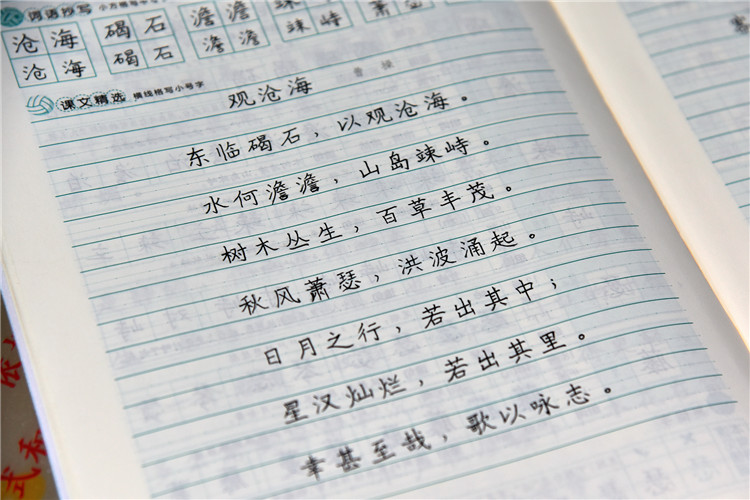 词语抄写
沧海 碣石 澹澹 竦峙 萧
沧海 碣石 澹澹 竦峙
课文精选 横线格写小号字
观沧海 曹操
东临碣石，以观沧海。
水何澹澹，山岛竦峙。
树木丛生，百草丰茂。
秋风萧瑟，洪波涌起。
日月之行，若出其中；
星汉灿烂，若出其里。
幸甚至哉，歌以咏志。